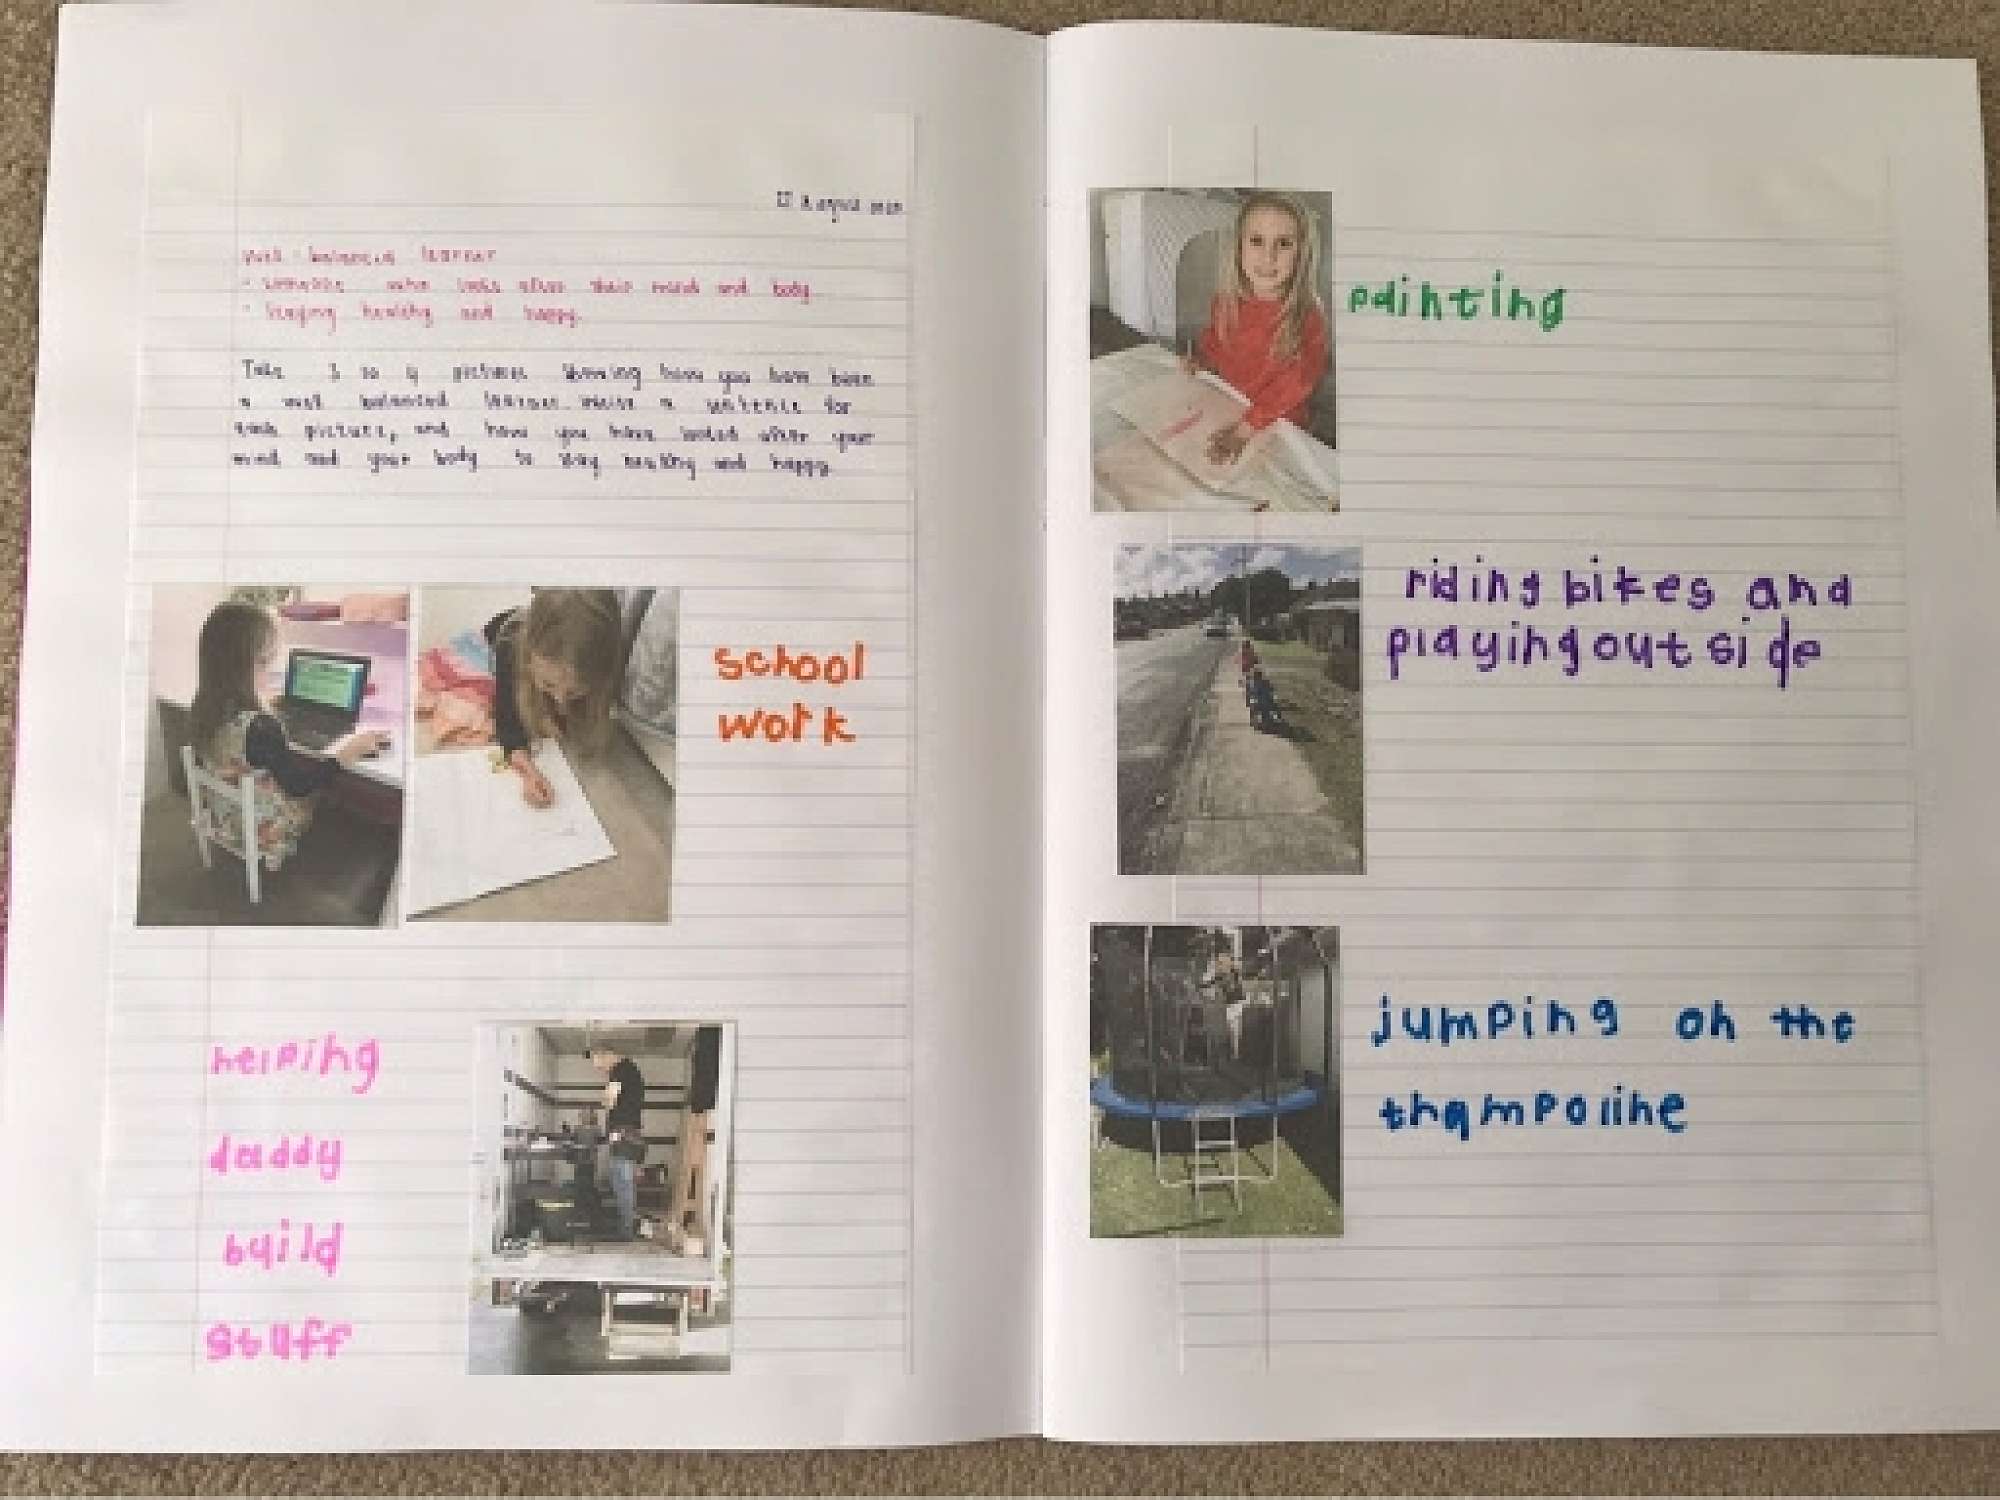 Well-balanced learner
- someone who looks after their mind and body
- staying healthy and happy.
Take 3 to 4 pictures showing how you have been
a well balanced learner. Write a sentence for
each picture, and how you have looked after your
mind and your body to stay healthy and happy.
school
work
helping
daddy
build
stuff
painting
riding bikes and
playing out side
jumping on the
trampoline